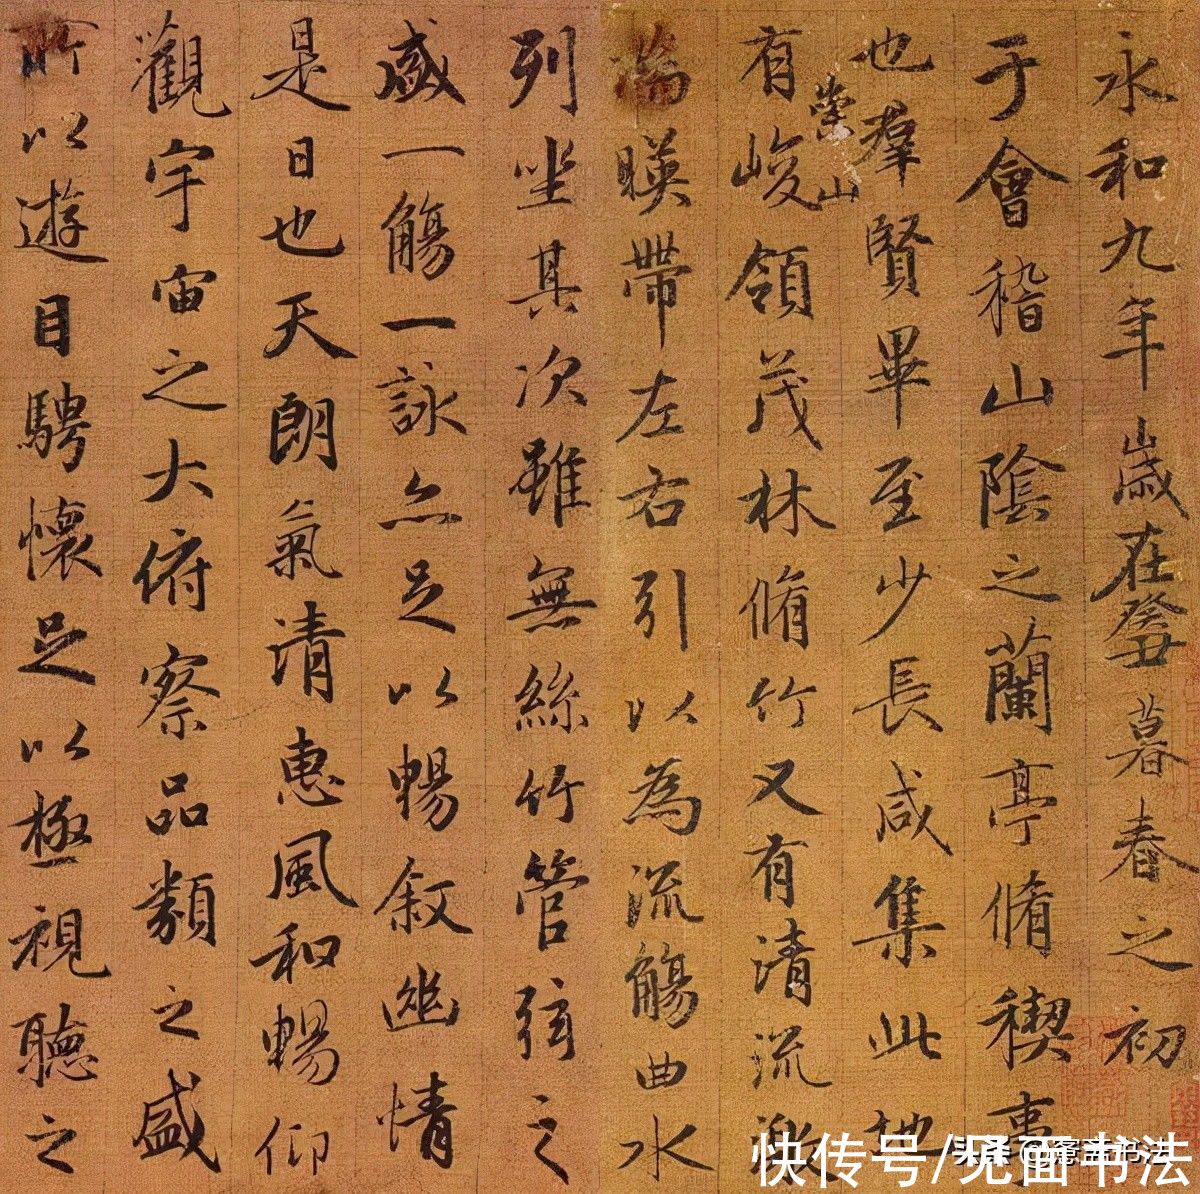 永和九年歲在癸丑暮春之初
于會稽山陰之蘭亭脩稧事
也羣賢畢至少長咸集此地
有崇山峻領茂林脩竹又有清流激
湍暎帶左右引以為流觴曲水
列坐其次雖無絲竹管弦之
盛一觴一詠亦足以暢叙幽情
是日也天朗氣清惠風和暢仰
觀宇宙之大俯察品類之盛
所以遊目騁懷足以極視聽之
快传号/见面书法